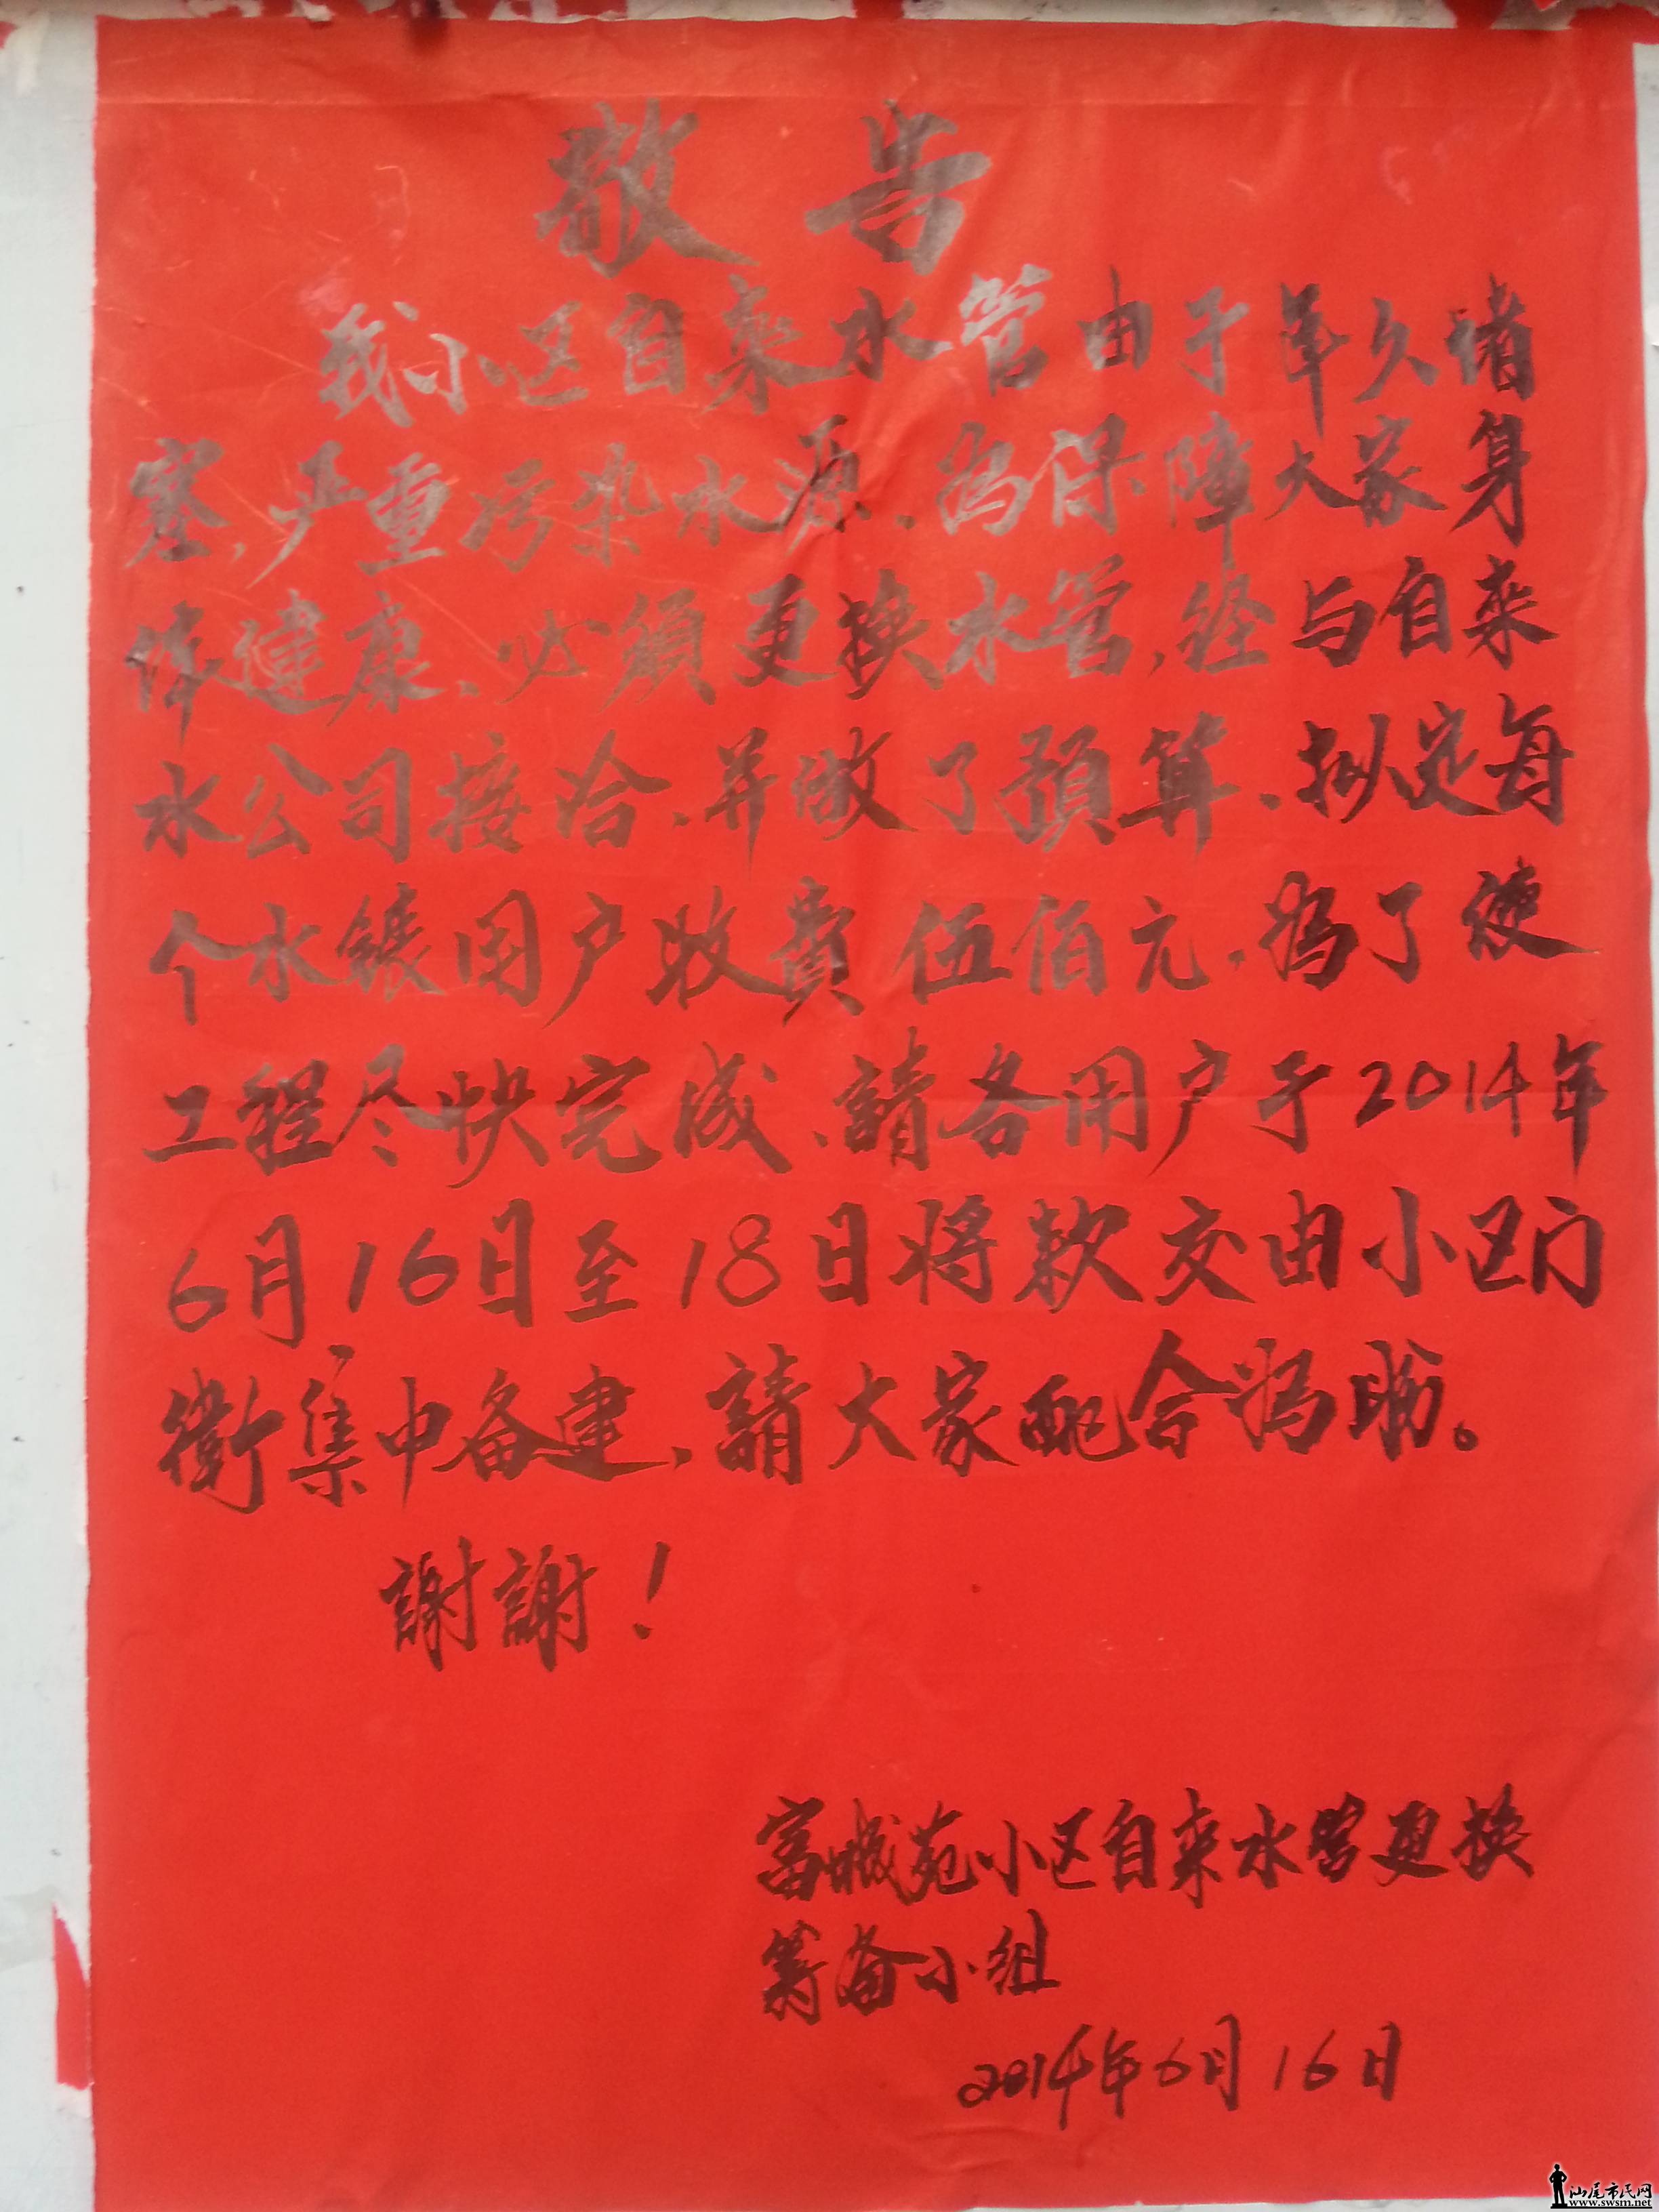 敬告
我小区自来水管由于年久堵
塞,严重污染水源、为保障大家身
体健康、必须更换水管,经与自来
水公司接洽、并做了預算、拟定每
个水錶用户收費伍佰元、為了使
工程尽快完成、請各用户于2014年
6月16日至18日将款交由小区门
衛集中备建,請大家配合為盼。
謝謝!
富城苑小区自来水管更换
筹备小组
2014年6月16日
汕尾市民网
www.swsm.net